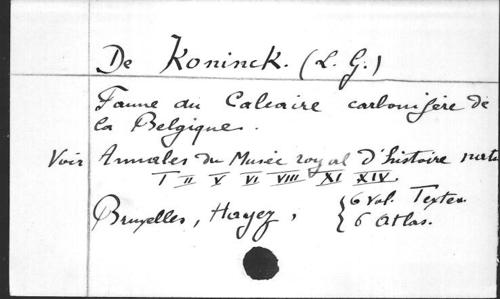 De Koninck. (L. G.)
Faune du Calcaire carbonifère de
la Belgique.
Voir Annales du Musée royal d'histoire nat
T II V VI VIII XI XIV
Bruxelles, Hayez, { 6 vol. Textes
{ 6 Atlas.